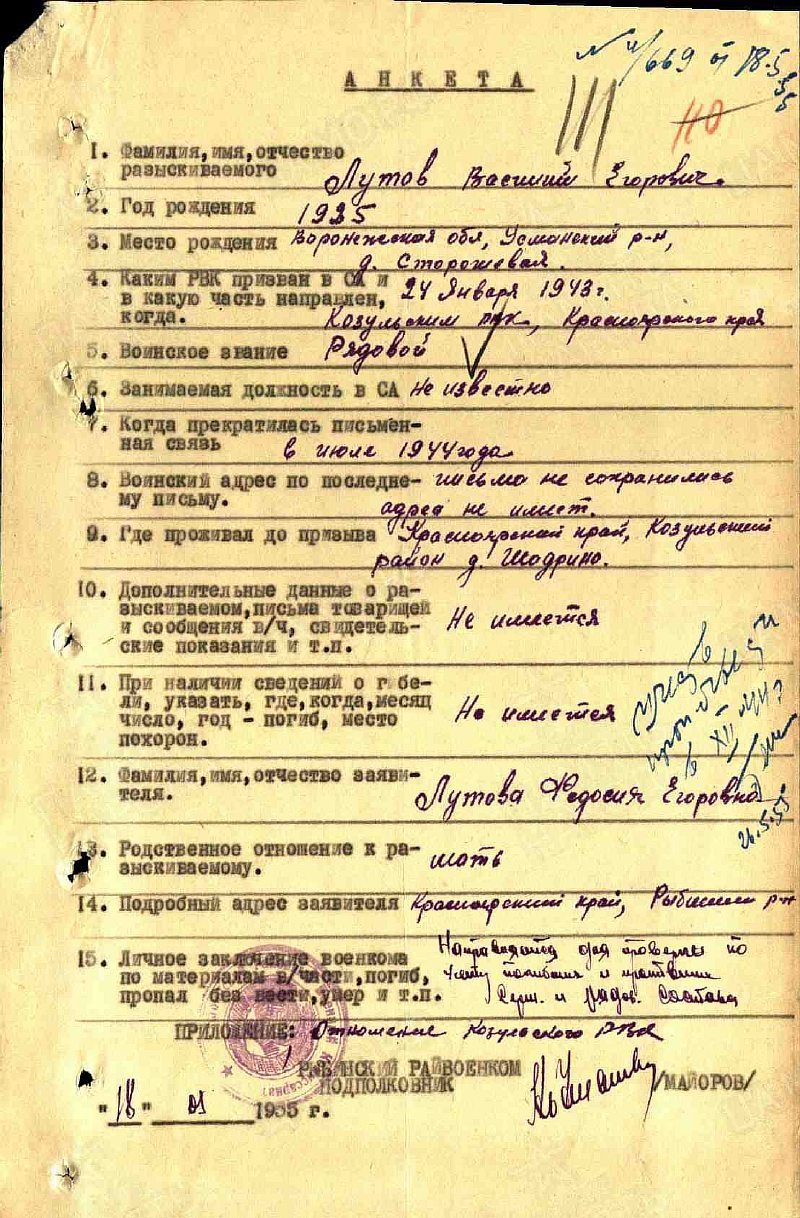 № 4/669 от 18.5.55
АНКЕТА
111
110
1. Фамилия, имя, отчество
разыскиваемого Лутов Василий Егорович.
2. Год рождения 1925
3. Место рождения Воронежская обл, Усманский р-н,
д. Сторожевая.
4. Каким РВК призван в СА и
в какую часть направлен, 24 января 1943 г.
когда. Козульским рвк, Красноярского края
5. Воинское звание Рядовой
6. Занимаемая должность в СА не известно
7. Когда прекратилась письмен-
ная связь в июле 1944 года
8. Воинский адрес по последне- письма не сохранились
му письму. адреса не имеет.
9. Где проживал до призыва Красноярский край, Козульский
район д. Шадрино.
10. Дополнительные данные о ра-
зыскиваемом, письма товарищей
и сообщения в/ч, свидетель- Не имеется
ские показания и т.п.
11. При наличии сведений о гибе-
ли, указать, где, когда, месяц
число, год - погиб, место Не имеется
похорон.
учесть
в XII
26.5.55
12. Фамилия, имя, отчество заяви-
теля. Лутова Федосия Егоровна
13. Родственное отношение к ра-
зыскиваемому. мать
14. Подробный адрес заявителя Красноярский край, Рыбинский р-н
15. Личное заключение военкома Направляется для проверки по
по материалам в/части, погиб, учету погибших и пропавших
пропал без вести, умер и т.п. Серж. и рядов. Состава
ПРИЛОЖЕНИЕ: Отношение Козульского РВК
РЫБИНСКИЙ РАЙВОЕНКОМ
ПОДПОЛКОВНИК /МАЙОРОВ/
"18" 1955 г.